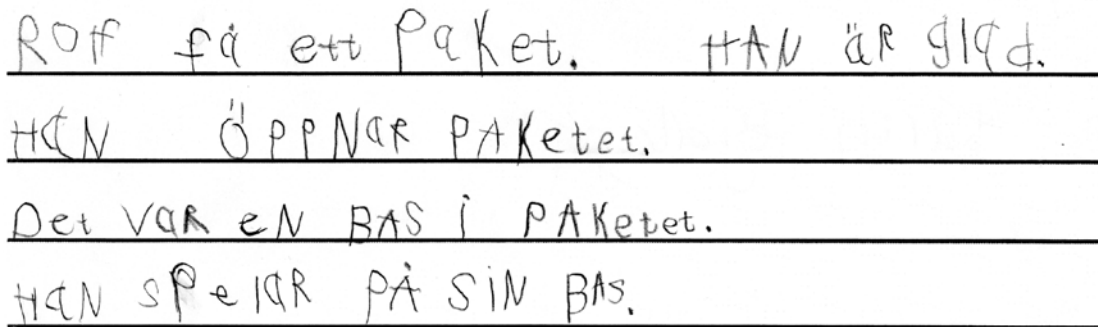 ROlf få ett PaKet. HAN äR glad.
HaN ÖPPNaR PAKetet.
Det VaR eN BAS i PAKetet.
HaN SPelaR PÅ SiN BAS.